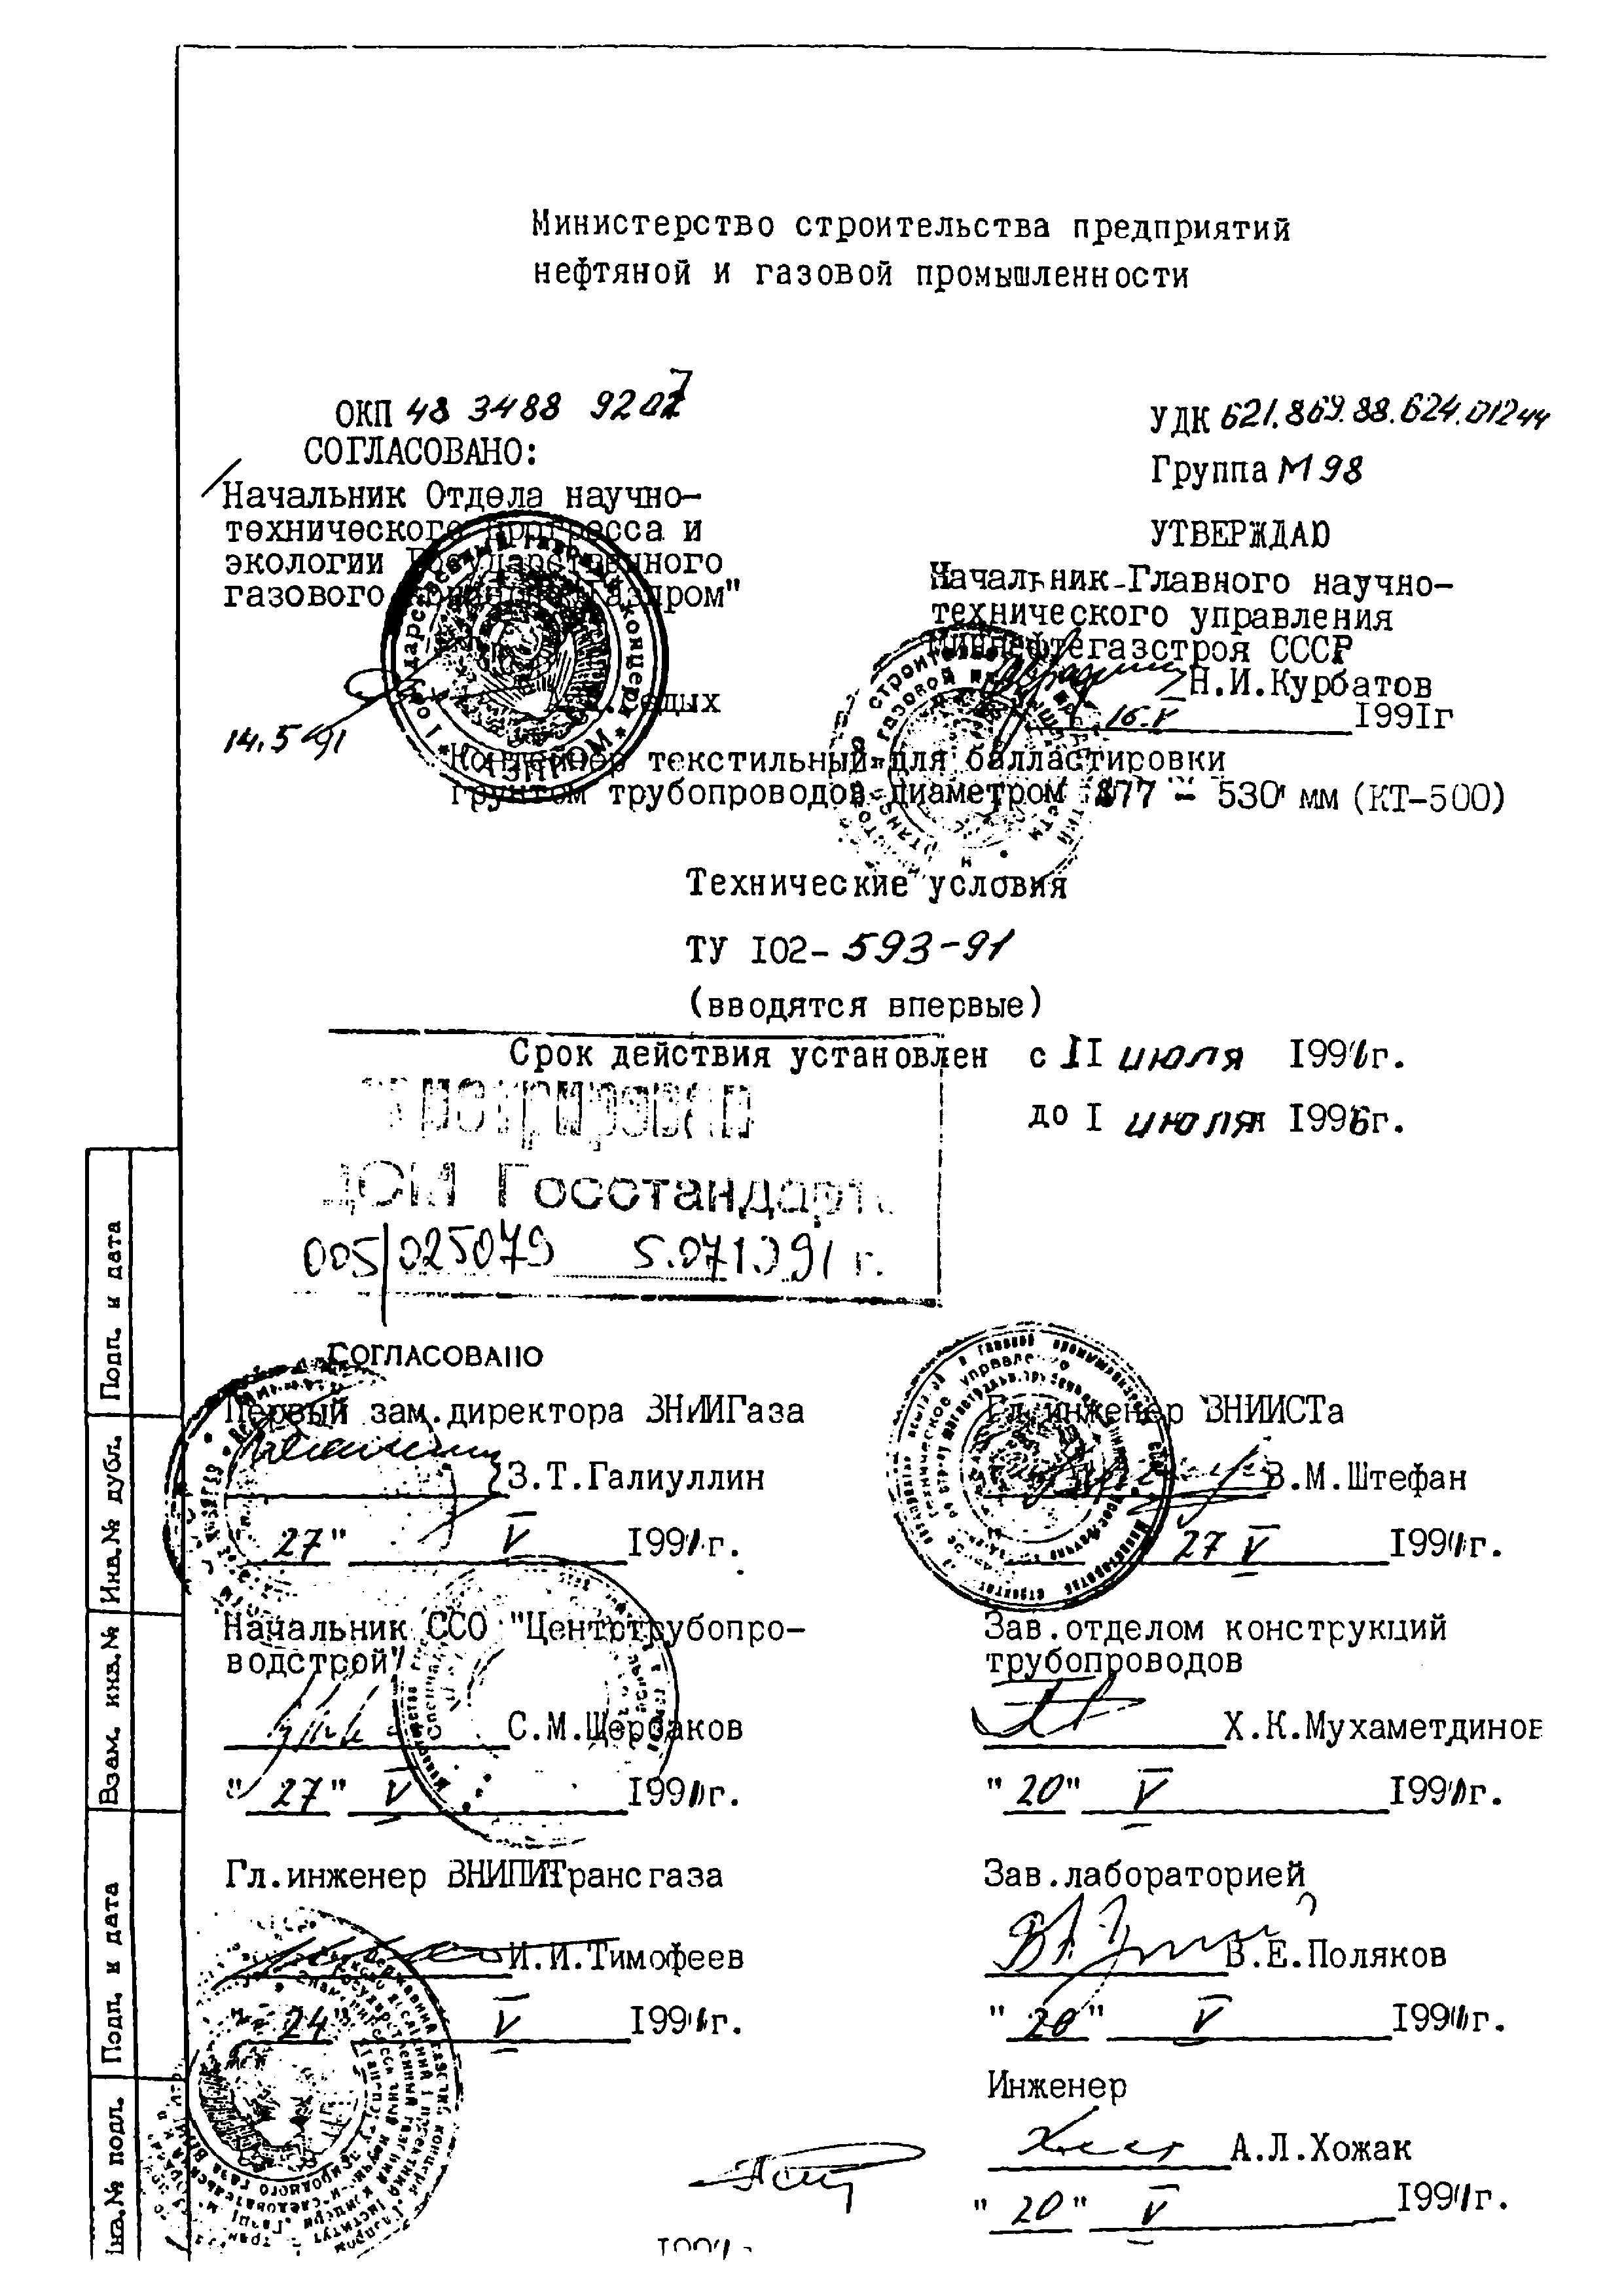 Министерство строительства предприятий
нефтяной и газовой промышленности
ОКП 48 3488 9207
УДК 621.869.88.624.01244
СОГЛАСОВАНО:
Группа М98
Начальник Отдела научно-
технического прогресса и
экологии Государственного
газового концерна "Газпром"
Седых
14.5 91
УТВЕРЖДАЮ
Начальник Главного научно-
технического управления
Миннефтегазстроя СССР
Н.И.Курбатов
16.V 1991г
Контейнер текстильный для балластировки
грунтом трубопроводов диаметром 377 - 530 мм (КТ-500)
Технические условия
ТУ 102-593-91
(вводятся впервые)
Срок действия установлен с II июля 1991г.
до I июля 1996г.
Госстандарт
005/025079 5.07 1991 г.
СОГЛАСОВАНО
Первый зам.директора ВНИИГаза
З.Т.Галиуллин
"27" V 1991г.
Гл.инженер ВНИИСТа
В.М.Штефан
27 V 1991г.
Начальник ССО "Центртрубопро-
водстрой"
С.М.Щербаков
"27" V 1991г.
Зав.отделом конструкций
трубопроводов
Х.К.Мухаметдинов
"20" V 1991г.
Гл.инженер ВНИПИТрансгаза
И.И.Тимофеев
"24" V 1991г.
Зав.лабораторией
В.Е.Поляков
"20" V 1991г.
Инженер
А.Л.Хожак
"20" V 1991г.
Подп. и дата
Инв.№ дубл.
Взам. инв.№
Подп. и дата
Инв.№ подл.